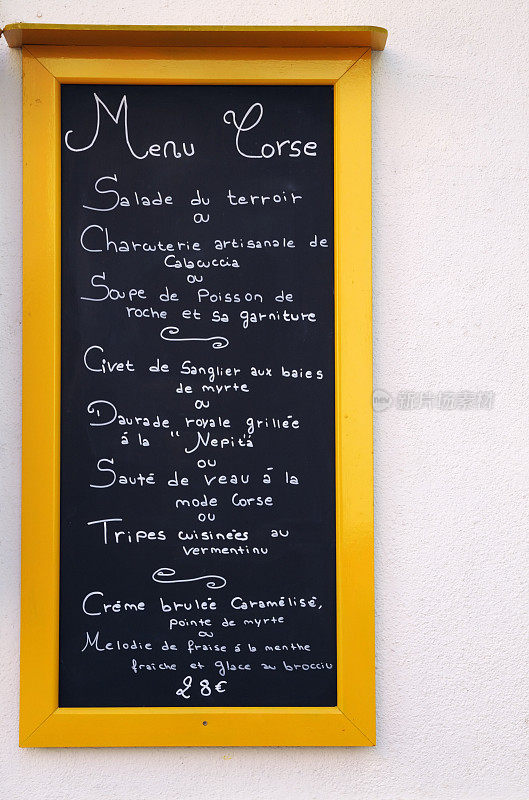 Menu Corse
Salade du terroir
ou
Charcuterie artisanale de
Calacuccia
ou
Soupe de Poisson de
roche et sa garniture
Civet de Sanglier aux baies
de myrte
ou
Daurade royale grillée
á la "Nepita
ou
Sauté de veau á la
mode Corse
ou
Tripes cuisineés au
vermentinu
Créme brulée Caramélisé,
pointe de myrte
ou
Melodie de fraise á la menthe
fraîche et glace au brocciu
28€
新片场 iStock